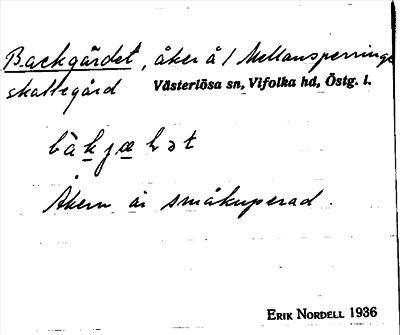 Backgärdet, åker å / Mellansperringe
skattegård Västerlösa sn, Vifolka hd, Östg. l.
Åkern är småkuperad.
ERIK NORDELL 1936